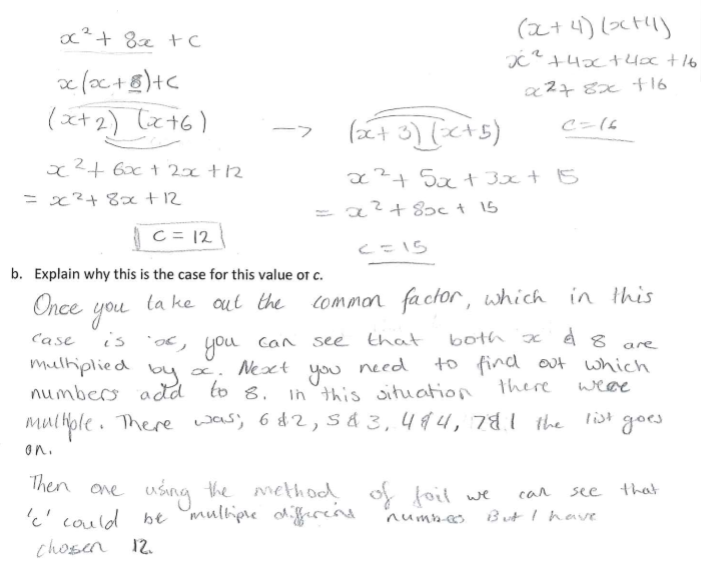 x² + 8x + c
x(x+8)+c
(x+2) (x+6)
x² + 6x + 2x + 12
= x² + 8x + 12
c = 12
→ (x+3)(x+5)
x² + 5x + 3x + 15
= x² + 8x + 15
c = 15
(x+4)(x+4)
x² + 4x + 4x + 16
x² + 8x + 16
c = 16
b. Explain why this is the case for this value of c.
Once you take out the common factor, which in this
case is 'x, you can see that both x & 8 are
multiplied by x. Next you need to find out which
numbers add to 8. in this situation there were
multiple. There was; 6 & 2, 5 & 3, 4 & 4, 7 & 1 the list goes
on.
Then one using the method of foil we can see that
'c' could be multiple different numbers But I have
chosen 12.